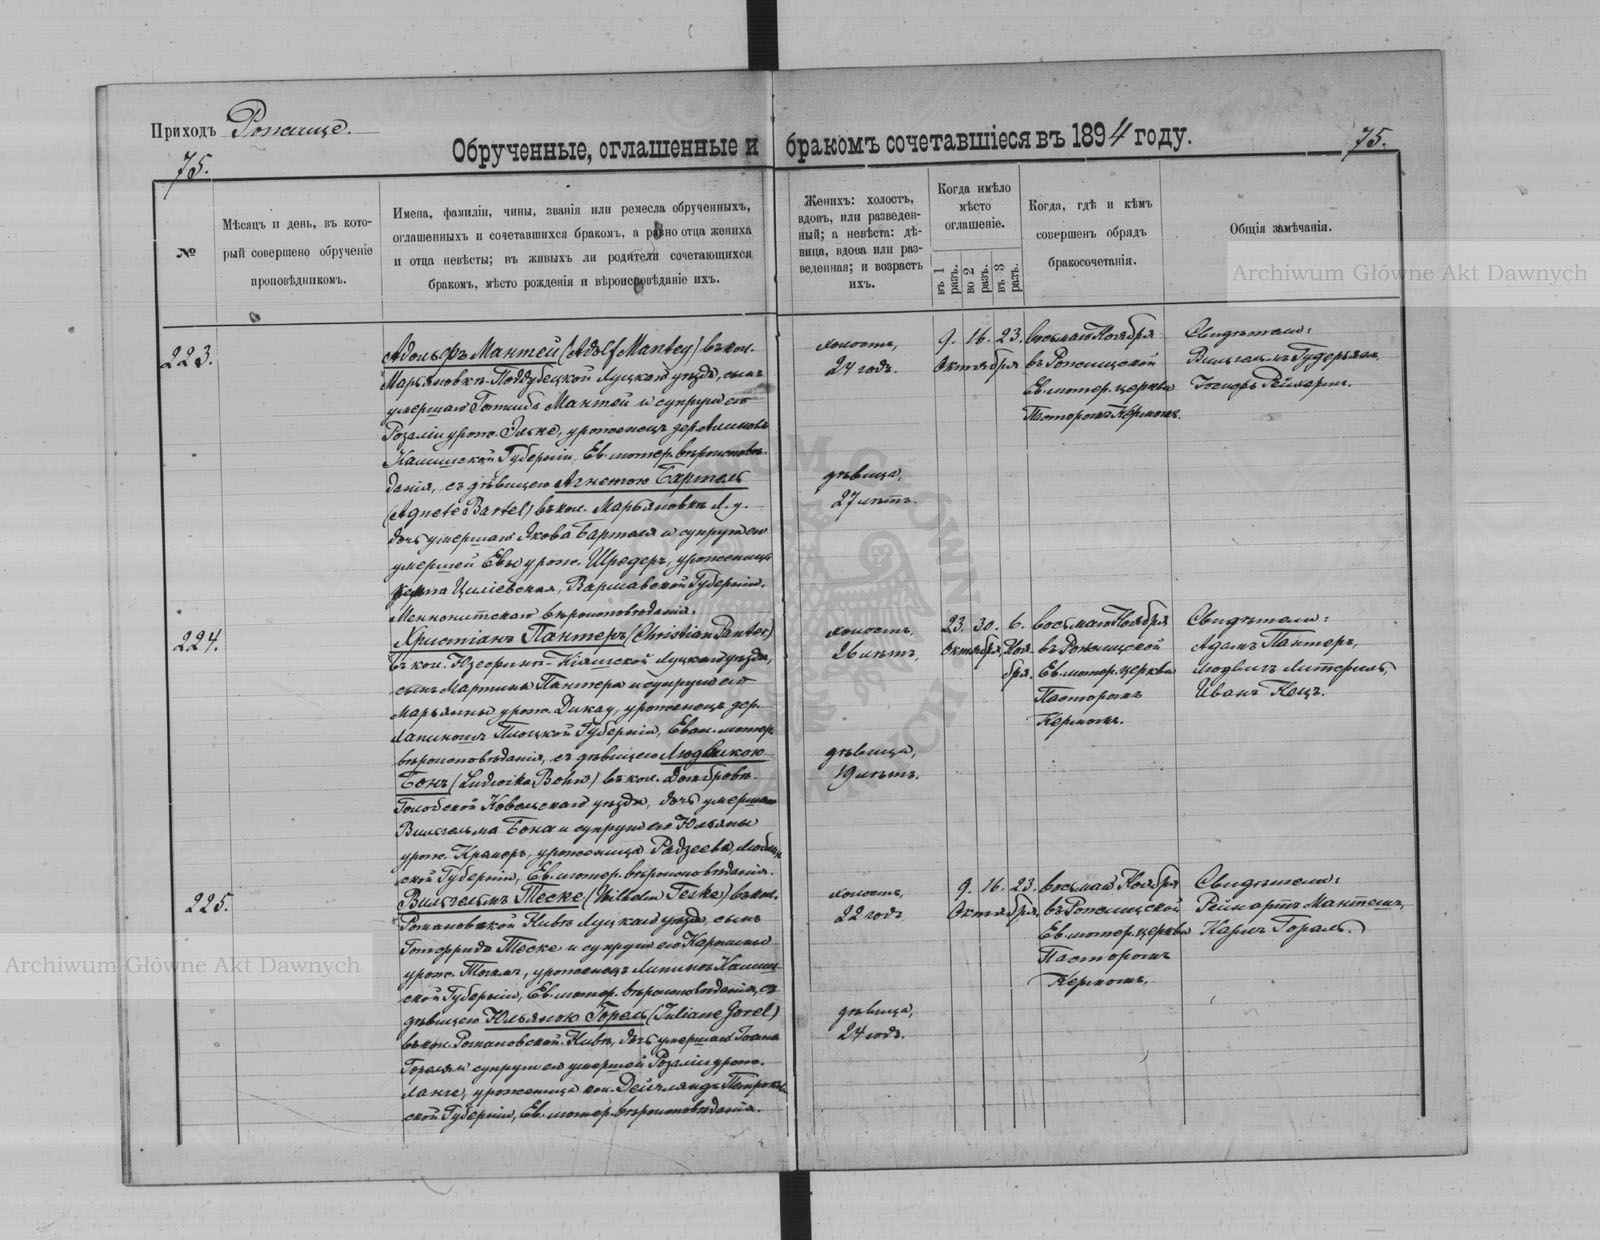 Приходъ Рожище.
75.
Обрученные, оглашенные и бракомъ сочетавшіеся въ 1894 году.
75.
№
Мѣсяцъ и день, въ кото-
рый совершено обрученіе
проповѣдникомъ.
Имена, фамиліи, чины, званія или ремесла обрученныхъ,
оглашенныхъ и сочетавшихся бракомъ, а равно отца жениха
и отца невѣсты; въ живыхъ ли родители сочетающихся
бракомъ, мѣсто рожденія и вѣроисповѣданіе ихъ.
Женихъ: холостъ,
вдовъ, или разведен-
ный; а невѣста: дѣ-
вица, вдова или раз-
веденная; и возрастъ
ихъ.
Когда имѣло
мѣсто
оглашеніе.
въ 1 разъ.
во 2 разъ.
въ 3 разъ.
Когда, гдѣ и кѣмъ
совершенъ обрядъ
бракосочетанія.
Общія замѣчанія.
Archiwum Główne Akt Dawnych
223.
Адольфъ Мантей (Adolf Mantey) въ кол.
Марьяновкѣ-Поддубецкой Луцкаго уѣзда, сынъ
умершаго Готлиба Мантей и супруги его
Розаліи урож. уроженецъ дер.
Калишской Губерніи, Ев. лютер. вѣроисповѣ-
данія, съ дѣвицею Агнетою Бартель
(Agnete Bartel) въ кол. Марьяновкѣ Л. у.
дочь умершаго Якова Бартеля и супруги его
умершей Евы урож. Шредеръ, уроженица
Варшавской Губерніи.
Меннонитскаго вѣроисповѣданія.
холостъ,
24 годъ.
дѣвица,
27 лѣтъ.
9. 16. 23.
Октября
восьмаго Ноября
въ Рожищской
Ев. лютер. церкви
Пасторомъ Керномъ.
Свидѣтели:
Вильгельмъ
224.
Христіанъ Пантеръ (Christian Panter)
въ кол. Юзефинѣ- Луцкаго уѣзда,
сынъ Мартина Пантера и супруги его
Марьянны урож. Дикау, уроженецъ дер.
Плоцкой Губерніи, Еван. лютер.
вѣроисповѣданія, съ дѣвицею Людвикою
Бонъ (Ludwika Bohn) въ кол. Домбровѣ-
Голобской Ковельскаго уѣзда, дочь умершаго
Вильгельма Бона и супруги его Юльяны
урож. Крамеръ, уроженица Люблин-
ской Губерніи, Ев. лютер. вѣроисповѣданія.
холостъ,
26 лѣтъ,
дѣвица,
19 лѣтъ.
23. 30. 6.
Октября, Ноя-
бря.
восьмаго Ноября
въ Рожищской
Ев. лютер. церкви
Пасторомъ
Керномъ.
Свидѣтели:
Адамъ Пантеръ,
Людвигъ
Иванъ Кецъ.
225.
Вильгельмъ Теске (Wilhelm Teske) въ кол.
Романовской Нивѣ Луцкаго уѣзда, сынъ
Готфрида Теске и супруги его Каролины
урож. уроженецъ Калиш-
ской Губерніи, Ев. лютер. вѣроисповѣданія, съ
дѣвицею Юльяною Горель (Juliane Gorel)
въ кол. Романовской-Нивѣ, дочь умершаго
супруги его умершей Розаліи урож.
Ланге, уроженица кол. Дейчляндъ Петроков-
ской Губерніи, Ев. лютер. вѣроисповѣданія.
холостъ,
22 годъ
дѣвица,
24 годъ.
9. 16. 23.
Октября.
восьмаго Ноября
въ Рожищской
Ев. лютер. церкви
Пасторомъ
Керномъ.
Свидѣтели:
Рейнартъ
Карлъ Гораль.
Archiwum Główne Akt Dawnych